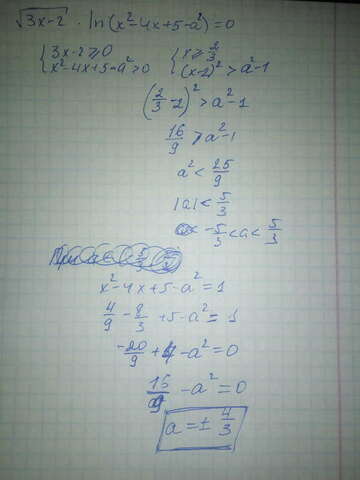 √(3x-2) · ln(x²-4x+5-a²)=0
{3x-2≥0 {x≥2/3
{x²-4x+5-a²>0 {(x-2)²>a²-1
(2/3-2)²>a²-1
16/9>a²-1
a²<25/9
|a|<5/3
-5/3<a<5/3
x²-4x+5-a²=1
4/9-8/3+5-a²=1
-20/9+4-a²=0
16/9-a²=0
a=±4/3